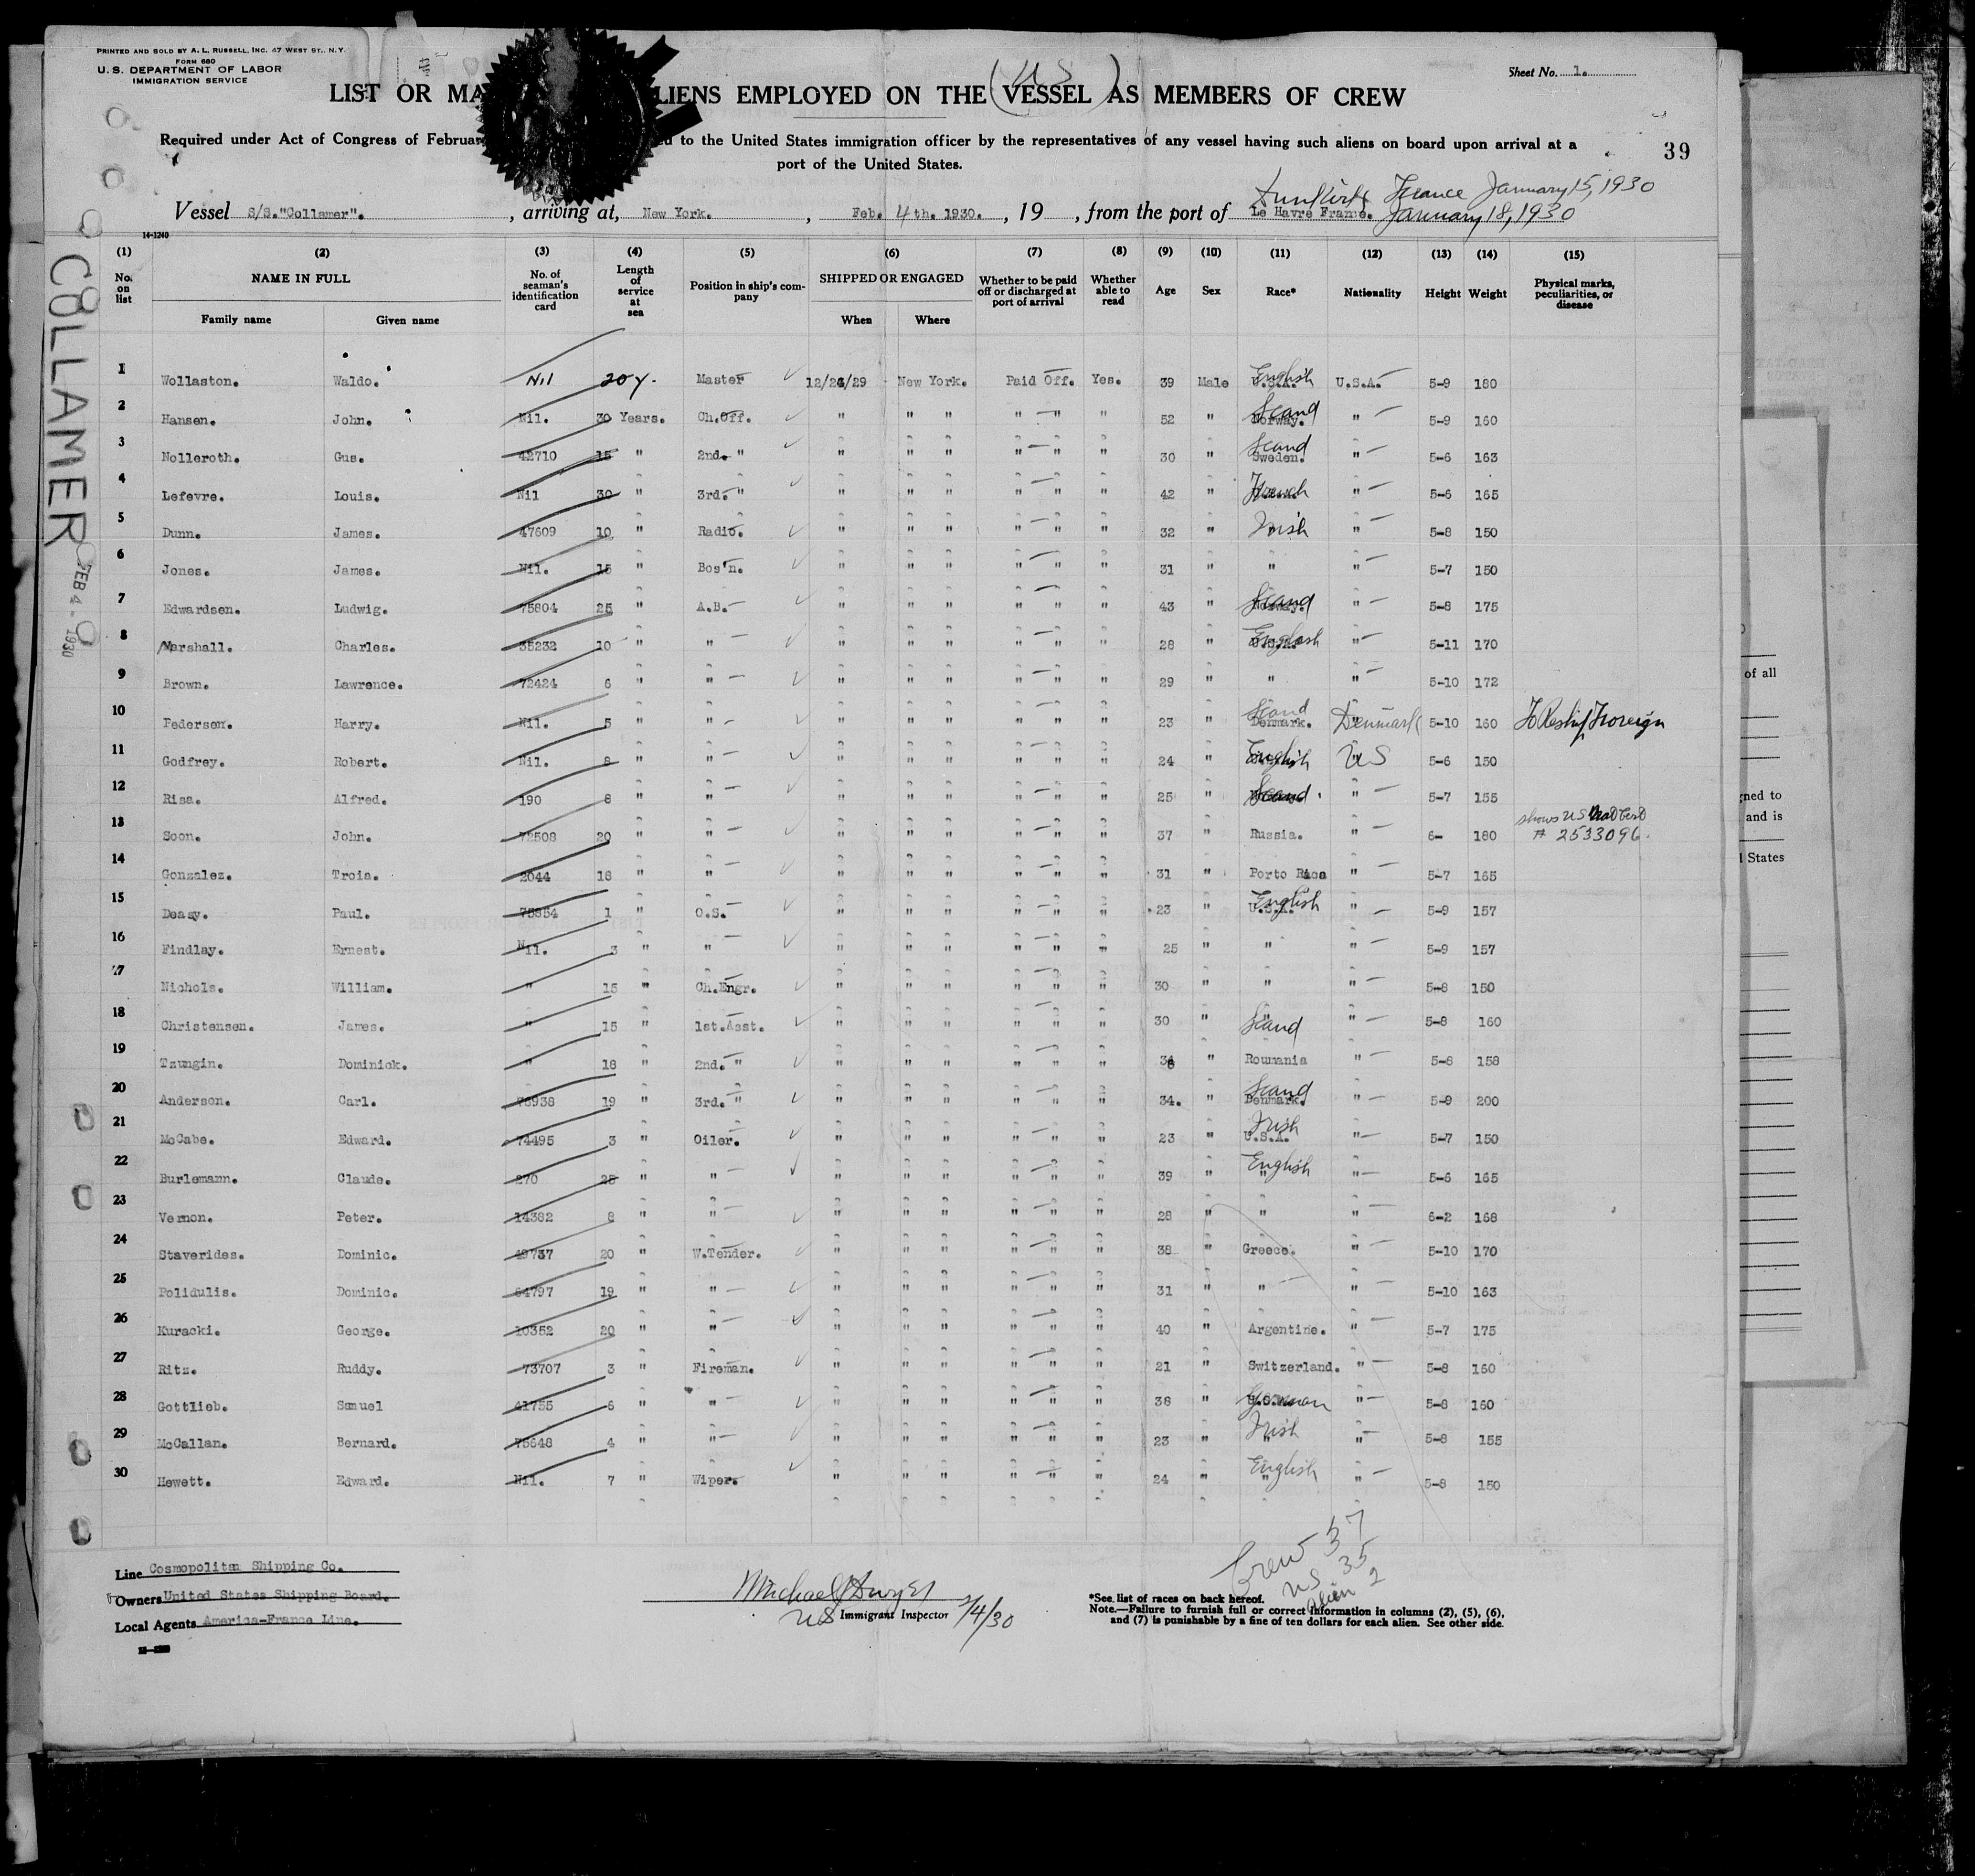 PRINTED AND SOLD BY A. L. RUSSELL, INC. 47 WEST ST., N.Y.
FORM 680
U. S. DEPARTMENT OF LABOR
IMMIGRATION SERVICE
Sheet No. 1.
(US)
LIST OR MA LIENS EMPLOYED ON THE VESSEL AS MEMBERS OF CREW
Required under Act of Congress of Februar d to the United States immigration officer by the representatives of any vessel having such aliens on board upon arrival at a
port of the United States.
39
Dunkirk France January 15, 1930
Vessel S/S."Collamer". , arriving at, New York. , Feb. 4th. 1930. , 19 , from the port of Le Havre France. January 18, 1930
14-1240
(1) (2) (3) (4) (5) (6) (7) (8) (9) (10) (11) (12) (13) (14) (15)
No. on list NAME IN FULL No. of seaman's identification card Length of service at sea Position in ship's company SHIPPED OR ENGAGED Whether to be paid off or discharged at port of arrival Whether able to read Age Sex Race* Nationality Height Weight Physical marks, peculiarities, or disease
Family name Given name When Where
1 Wollaston. Waldo. Nil 20 y. Master 12/26/29 New York. Paid Off. Yes. 39 Male English U.S.A. U.S.A. 5-9 180
2 Hansen. John. Nil. 30 Years. Ch.Off. " " " " " " 52 " Scand Norway. " 5-9 160
3 Nolleroth. Gus. 42710 15 " 2nd. " " " " " " " 30 " Scand Sweden. " 5-6 163
4 Lefevre. Louis. Nil 30 " 3rd. " " " " " " " 42 " French " 5-6 165
5 Dunn. James. 47609 10 " Radio. " " " " " " 32 " Irish " 5-8 150
6 Jones. James. Nil. 15 " Bos'n. " " " " " " 31 " " " 5-7 150
7 Edwardsen. Ludwig. 75804 25 " A.B. " " " " " " 43 " Scand Norway. " 5-8 175
8 Marshall. Charles. 35232 10 " " " " " " " " 28 " English U.S.A. " 5-11 170
9 Brown. Lawrence. 72424 6 " " " " " " " " 29 " " " 5-10 172
10 Pedersen. Harry. Nil. 5 " " " " " " " " 23 " Scand Denmark. Denmark 5-10 160 To Reship Foreign
11 Godfrey. Robert. Nil. 8 " " " " " " " " 24 " English US 5-6 150
12 Risa. Alfred. 190 8 " " " " " " " " 25 " Scand. " 5-7 155
13 Soon. John. 72508 20 " " " " " " " " 37 " Russia. " 6- 180 shows US Nat Cert # 2533096.
14 Gonzalez. Troia. 2044 18 " " " " " " " " 31 " Porto Rica " 5-7 165
15 Deasy. Paul. 75854 1 " O.S. " " " " " " 23 " English U.S.A. " 5-9 157
16 Findlay. Ernest. Nil. 3 " " " " " " " " 25 " " " 5-9 157
17 Nichols. William. " 15 " Ch.Engr. " " " " " " 30 " " " 5-8 150
18 Christensen. James. " 15 " 1st.Asst. " " " " " " 30 " Scand " 5-8 160
19 Tzungin. Dominick. " 18 " 2nd. " " " " " " " " Roumania " 5-8 158
20 Anderson. Carl. 76938 19 " 3rd. " " " " " " " 34. " Scand Denmark. " 5-9 200
21 McCabe. Edward. 74495 3 " Oiler. " " " " " " 23 " Irish U.S.A. " 5-7 150
22 Burlemann. Claude. 270 25 " " " " " " " " 39 " English " " 5-6 165
23 Vernon. Peter. 14382 8 " " " " " " " " 28 " " " 6-2 168
24 Staverides. Dominic. 49737 20 " W.Tender. " " " " " " 38 " Greece. " 5-10 170
25 Polidulis. Dominic. 64797 19 " " " " " " " " 31 " " " 5-10 163
26 Kuracki. George. 10352 20 " " " " " " " " 40 " Argentine. " 5-7 175
27 Ritz. Ruddy. 73707 3 " Fireman. " " " " " " 21 " Switzerland. " 5-8 160
28 Gottlieb. Samuel 41755 6 " " " " " " " " 38 " German " 5-8 160
29 McCallan. Bernard. 75648 4 " " " " " " " " 23 " Irish " " 5-8 155
30 Hewett. Edward. Nil. 7 " Wiper. " " " " " " 24 " English " " 5-8 150
COLLAMER
FEB 4 - 1930
Crew 37
US 35
Alien 2
Line Cosmopolitan Shipping Co.
Owners United States Shipping Board.
Local Agents America-France Line.
US Immigrant Inspector 2/4/30
*See list of races on back hereof.
Note.—Failure to furnish full or correct information in columns (2), (5), (6),
and (7) is punishable by a fine of ten dollars for each alien. See other side.
of all
gned to
and is
States